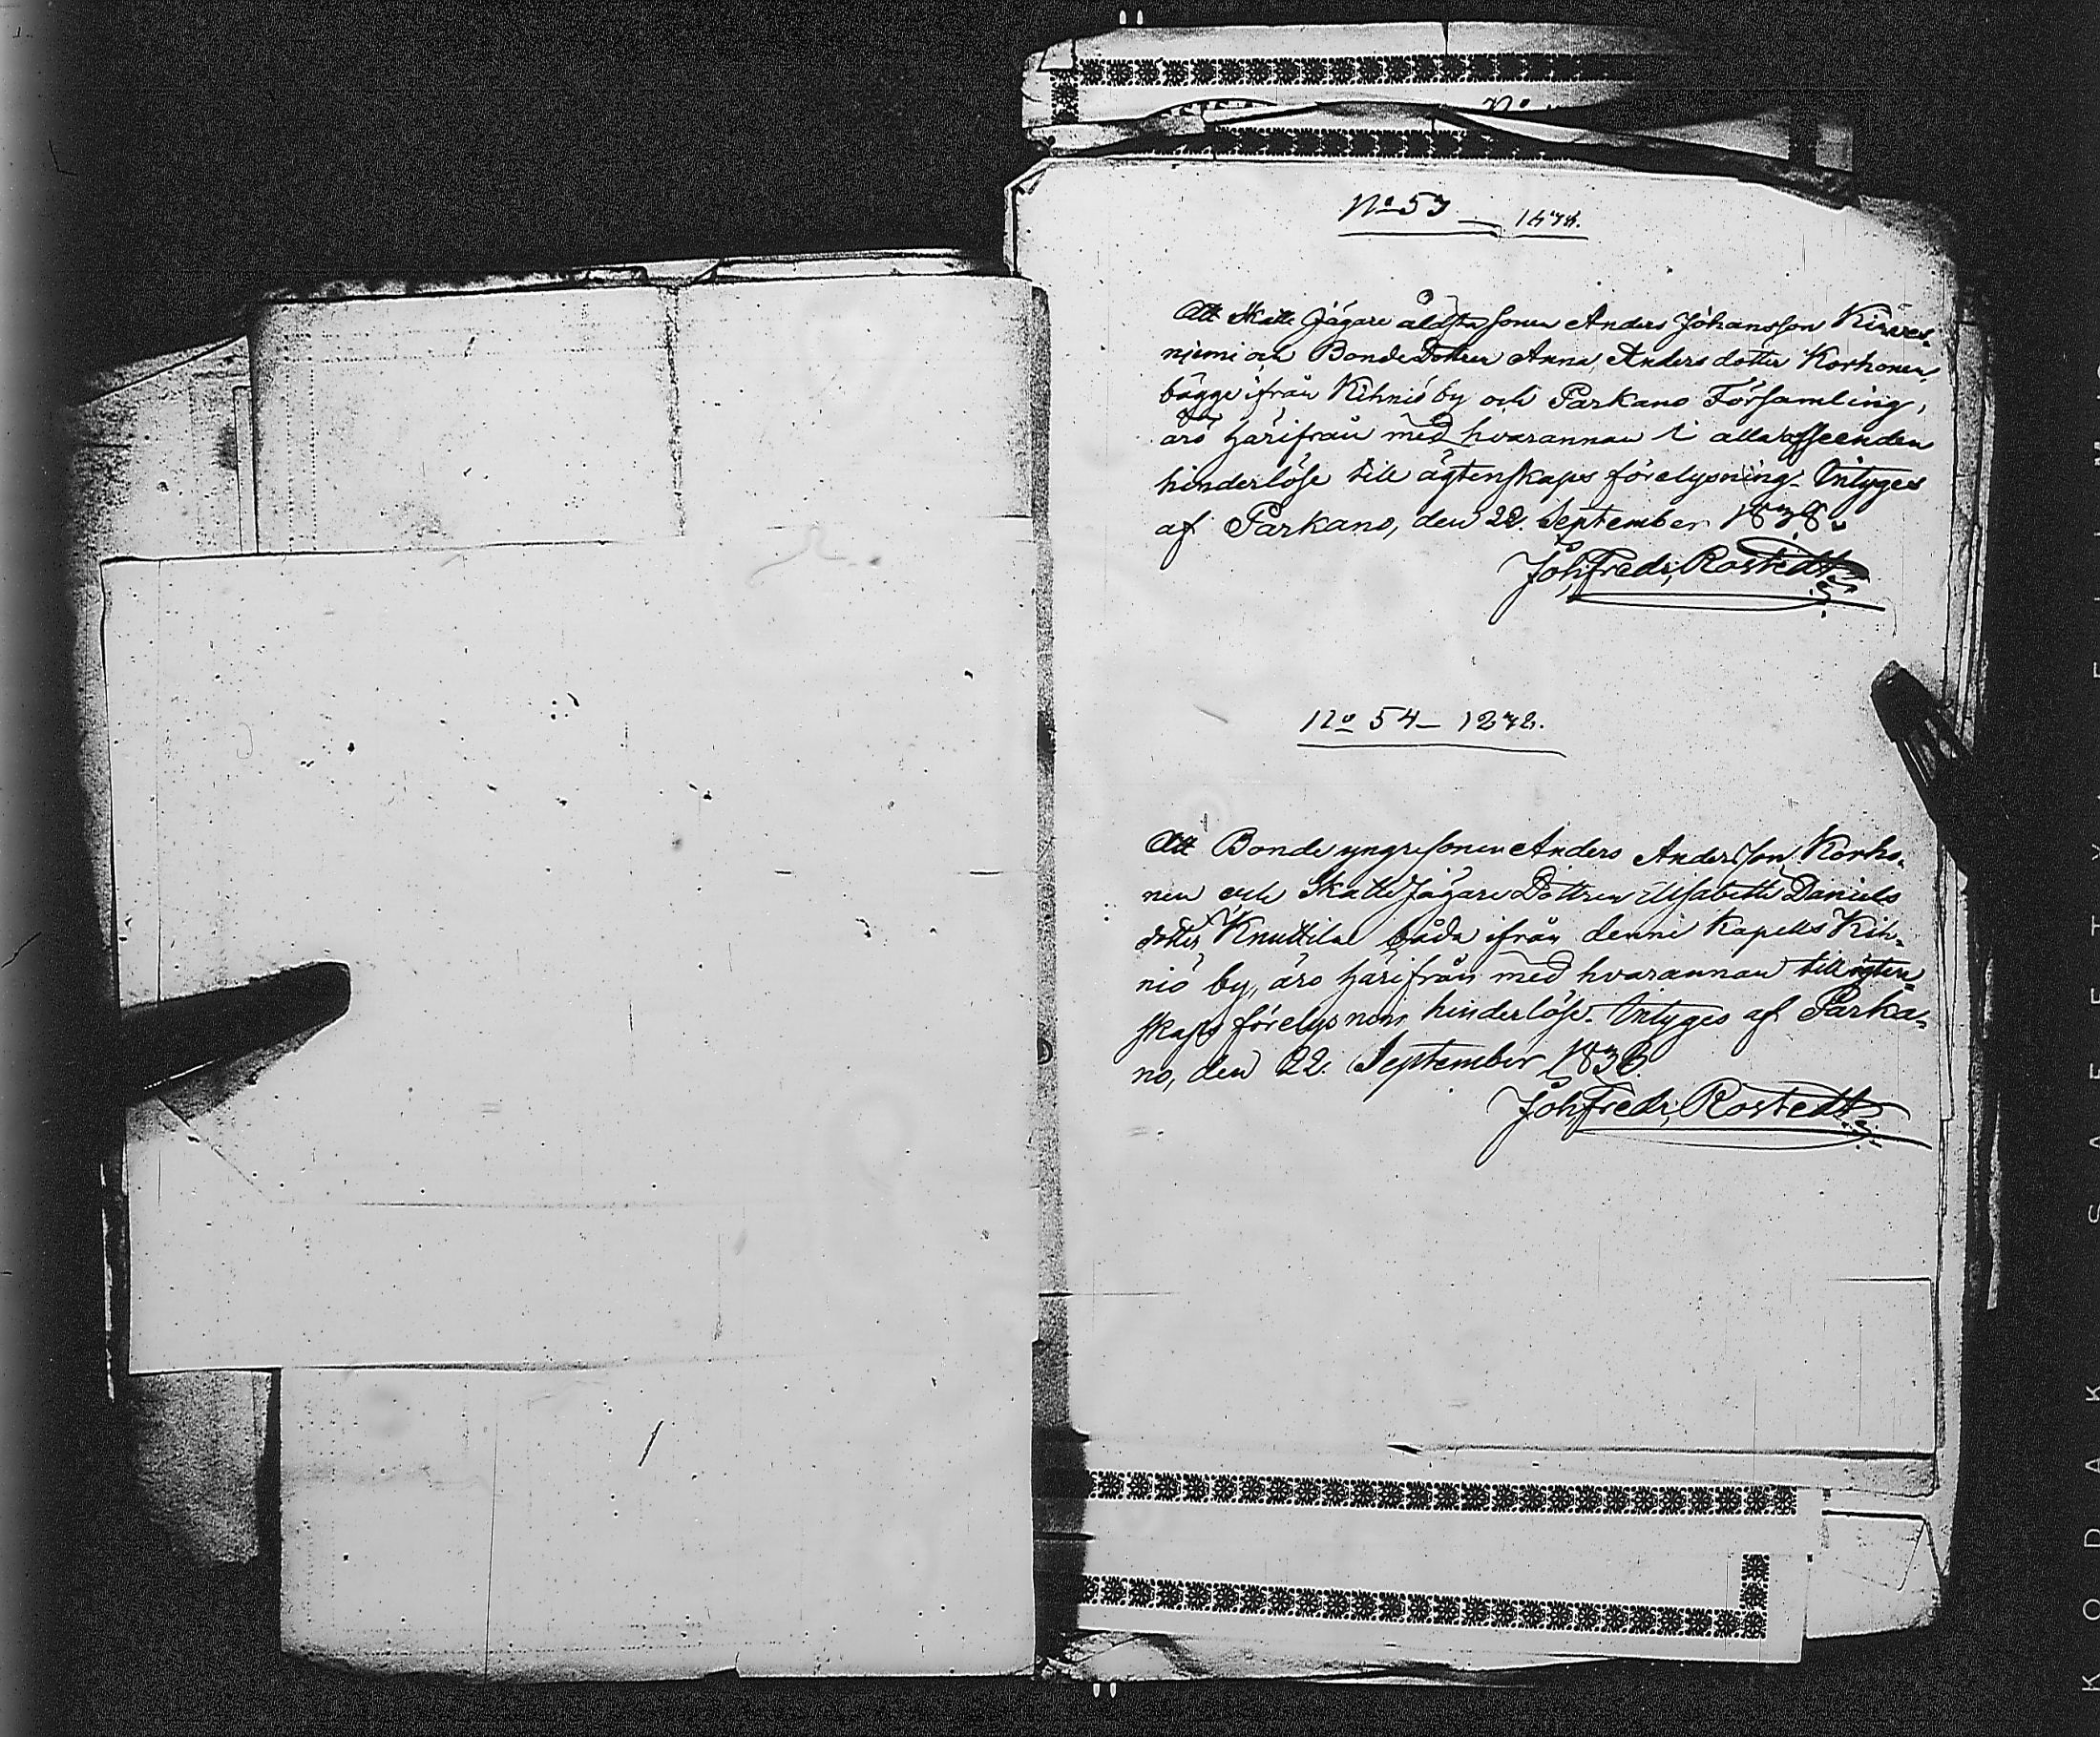 No 53 — 1838.
Att Skatte Jägare äldsta sonen Anders Johansson Kirves-
niemi och Bonde Dottren Anna Anders dotter Korhonen,
bägge ifrån Kihniö by och Parkano Församling,
äro härifrån med hvarannan i alla afseenden
hinderlöse till ägtenskaps förelysning. Intyges
af Parkano, den 22. September 1838.
Joh, Fredr, Rostedt
No 54 — 1838.
Att Bonde yngre sonen Anders Andersson Korho-
nen och Skatte Jägare Dottren Elisabeth Daniels
dotter Knuttila båda ifrån denne Kapells Kih-
niö by, äro härifrån med hvarannan till ägten-
skaps förelysning hinderlöse. Intyges af Parka-
no, den 22. September 1838.
Joh, Fredr, Rostedt
KODAK SAFETY FILM